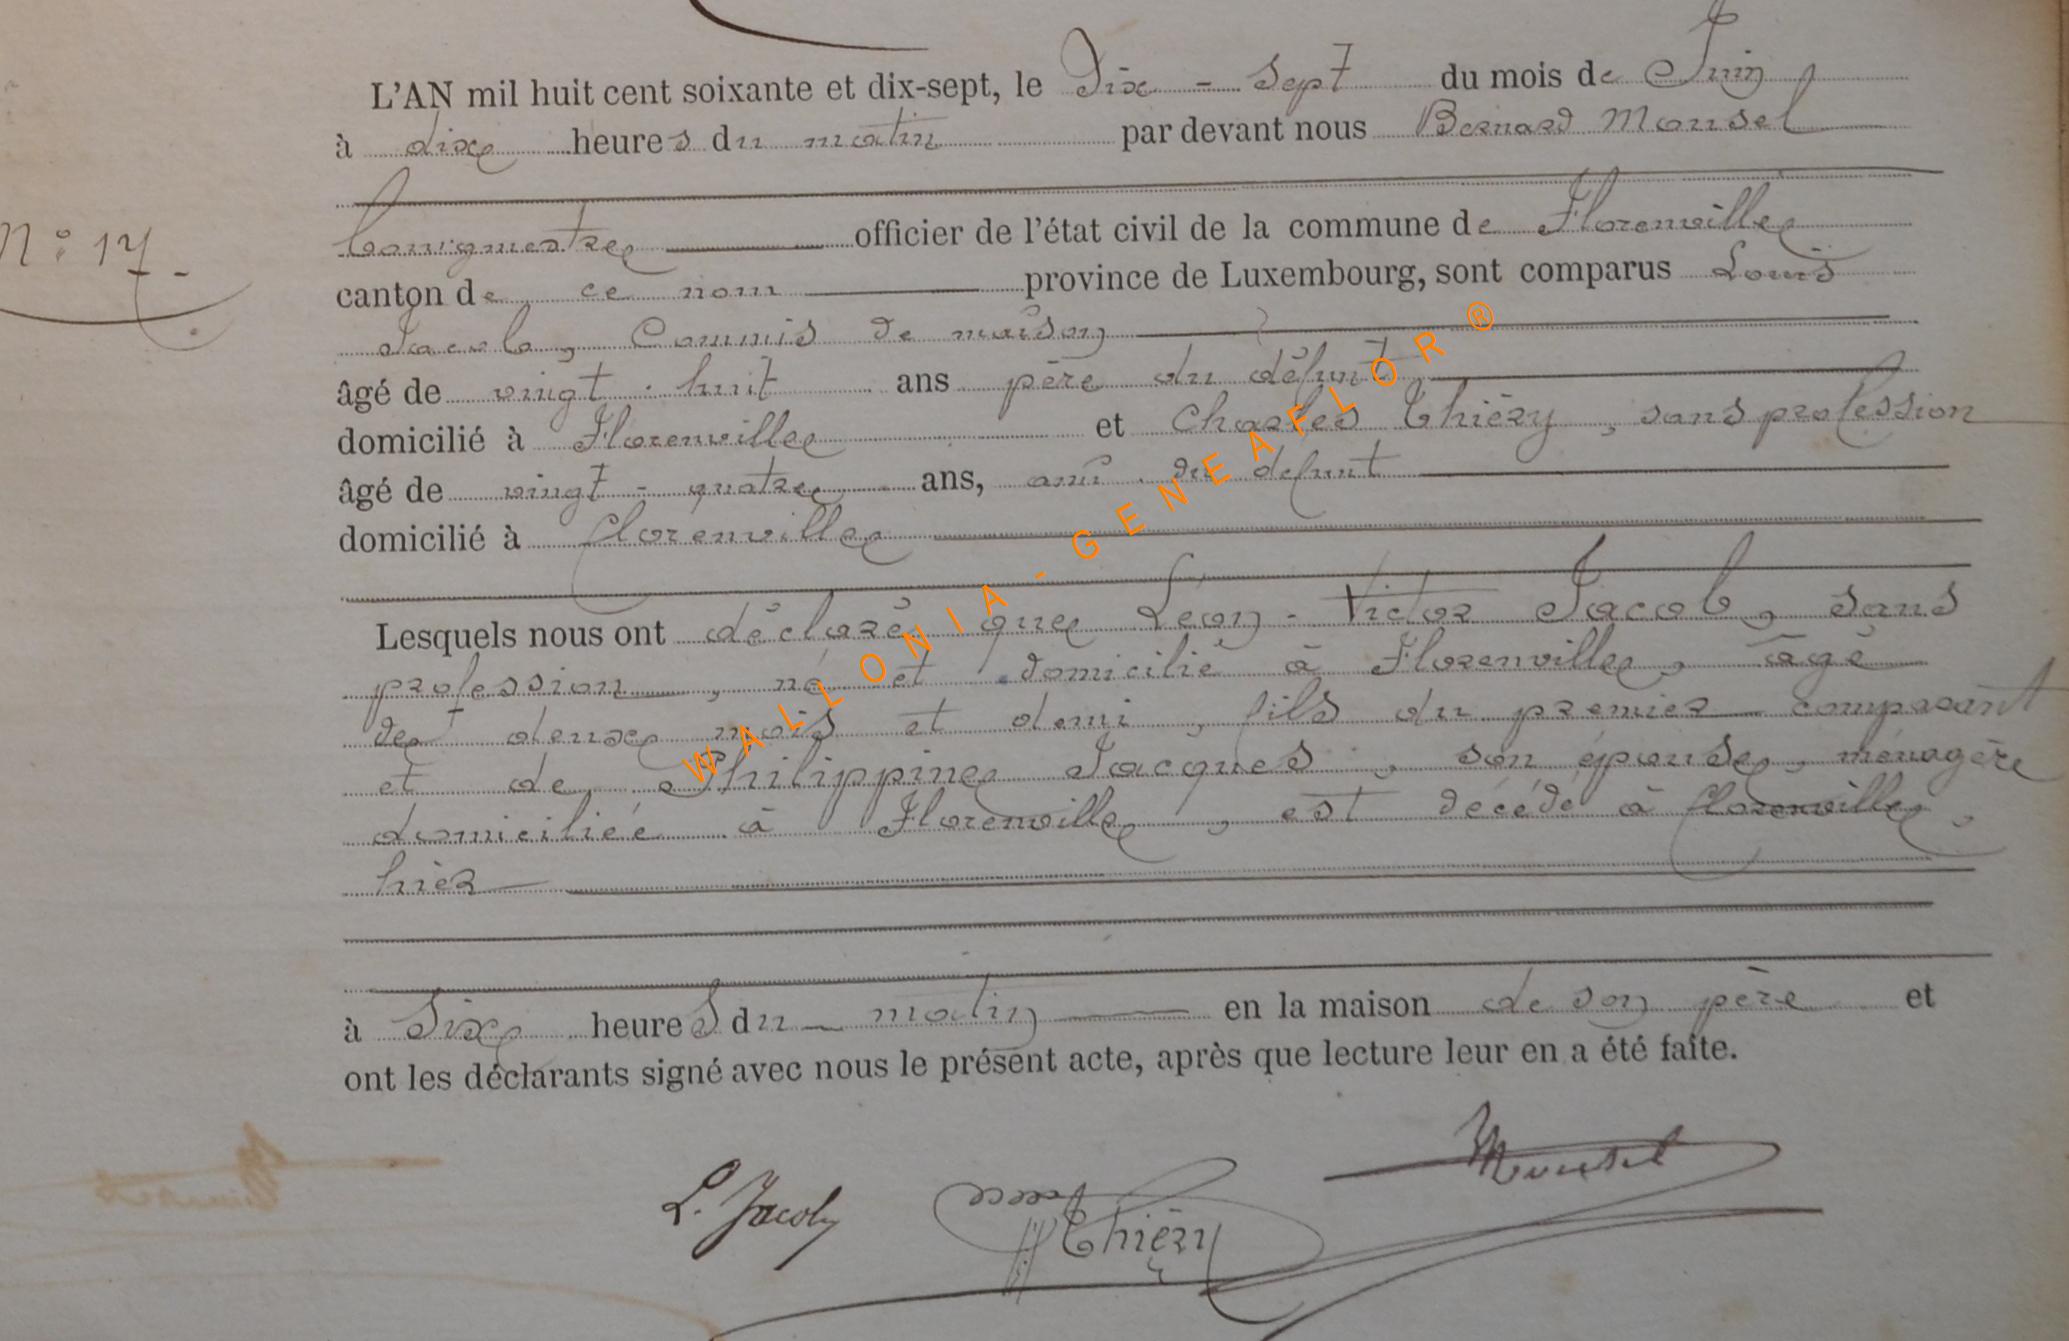 L'AN mil huit cent soixante et dix-sept, le Dix - sept du mois de Juin
à dix heures du matin par devant nous Bernard Mousel
N° 17.
bourgmestre officier de l'état civil de la commune de Florenville
canton de ce nom province de Luxembourg, sont comparus Louis
Jacob, Commis de maison
âgé de vingt-huit ans père du défunt
domicilié à Florenville et Charles Thiéry, sans profession
âgé de vingt-quatre ans, ami du defunt
domicilié à florenville
Lesquels nous ont déclaré que Léon-Victor Jacob, sans
profession, né et domicilié à Florenville, âgé
de deux mois et demi, fils du premier comparant
et de Philippine Jacques, son épouse, ménagère
domiciliée à Florenville, est décédé à florenville,
hier
à Six heures du matin en la maison de son père et
ont les déclarants signé avec nous le présent acte, après que lecture leur en a été faite.
L. Jacob Thiéry Mousel
WALLONIA - GENEAFLOR ®